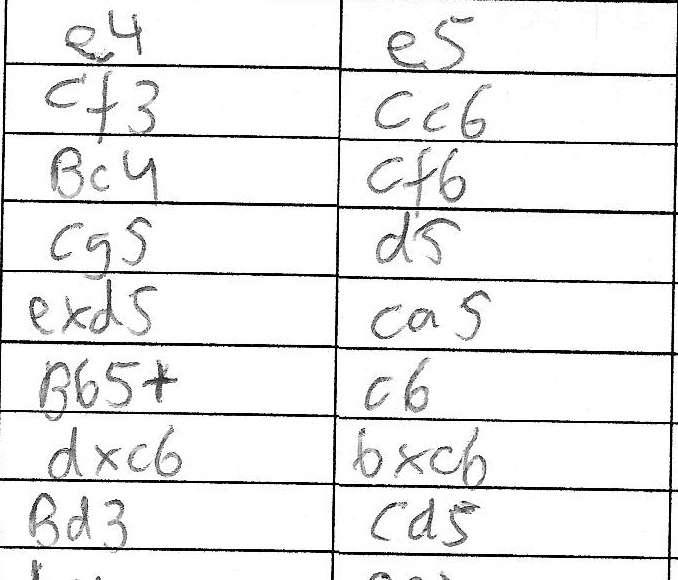 e4 e5
Cf3 Cc6
Bc4 Cf6
Cg5 d5
exd5 Ca5
Bb5+ c6
dxc6 bxc6
Bd3 Cd5